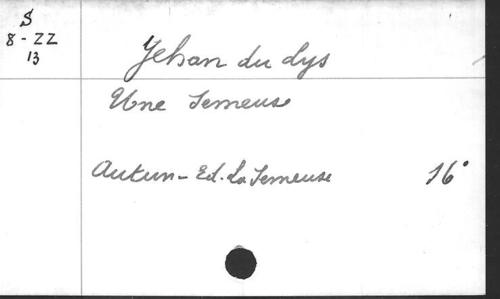 S
8-ZZ
13
Jehan du Lys
Une Semeuse
Autun - Ed. La Semeuse 16°